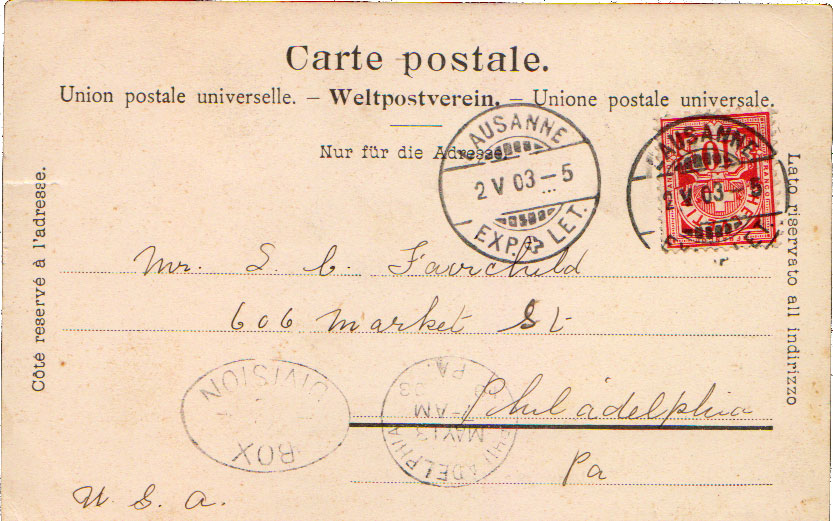 Carte postale.
Union postale universelle. – Weltpostverein. – Unione postale universale.
Nur für die Adresse.
LAUSANNE
2 V 03 – 5
EXP. LET.
LAUSANNE
10
2 V 03 – 5
EXP. LET.
Côté reservé à l'adresse.
Lato riservato all indirizzo
Mr. S. C. Fairchild
606 Market St
Philadelphia
Pa
U. S. A.
BOX
DIVISION
PHILADELPHIA
MAY 13
AM
PA.